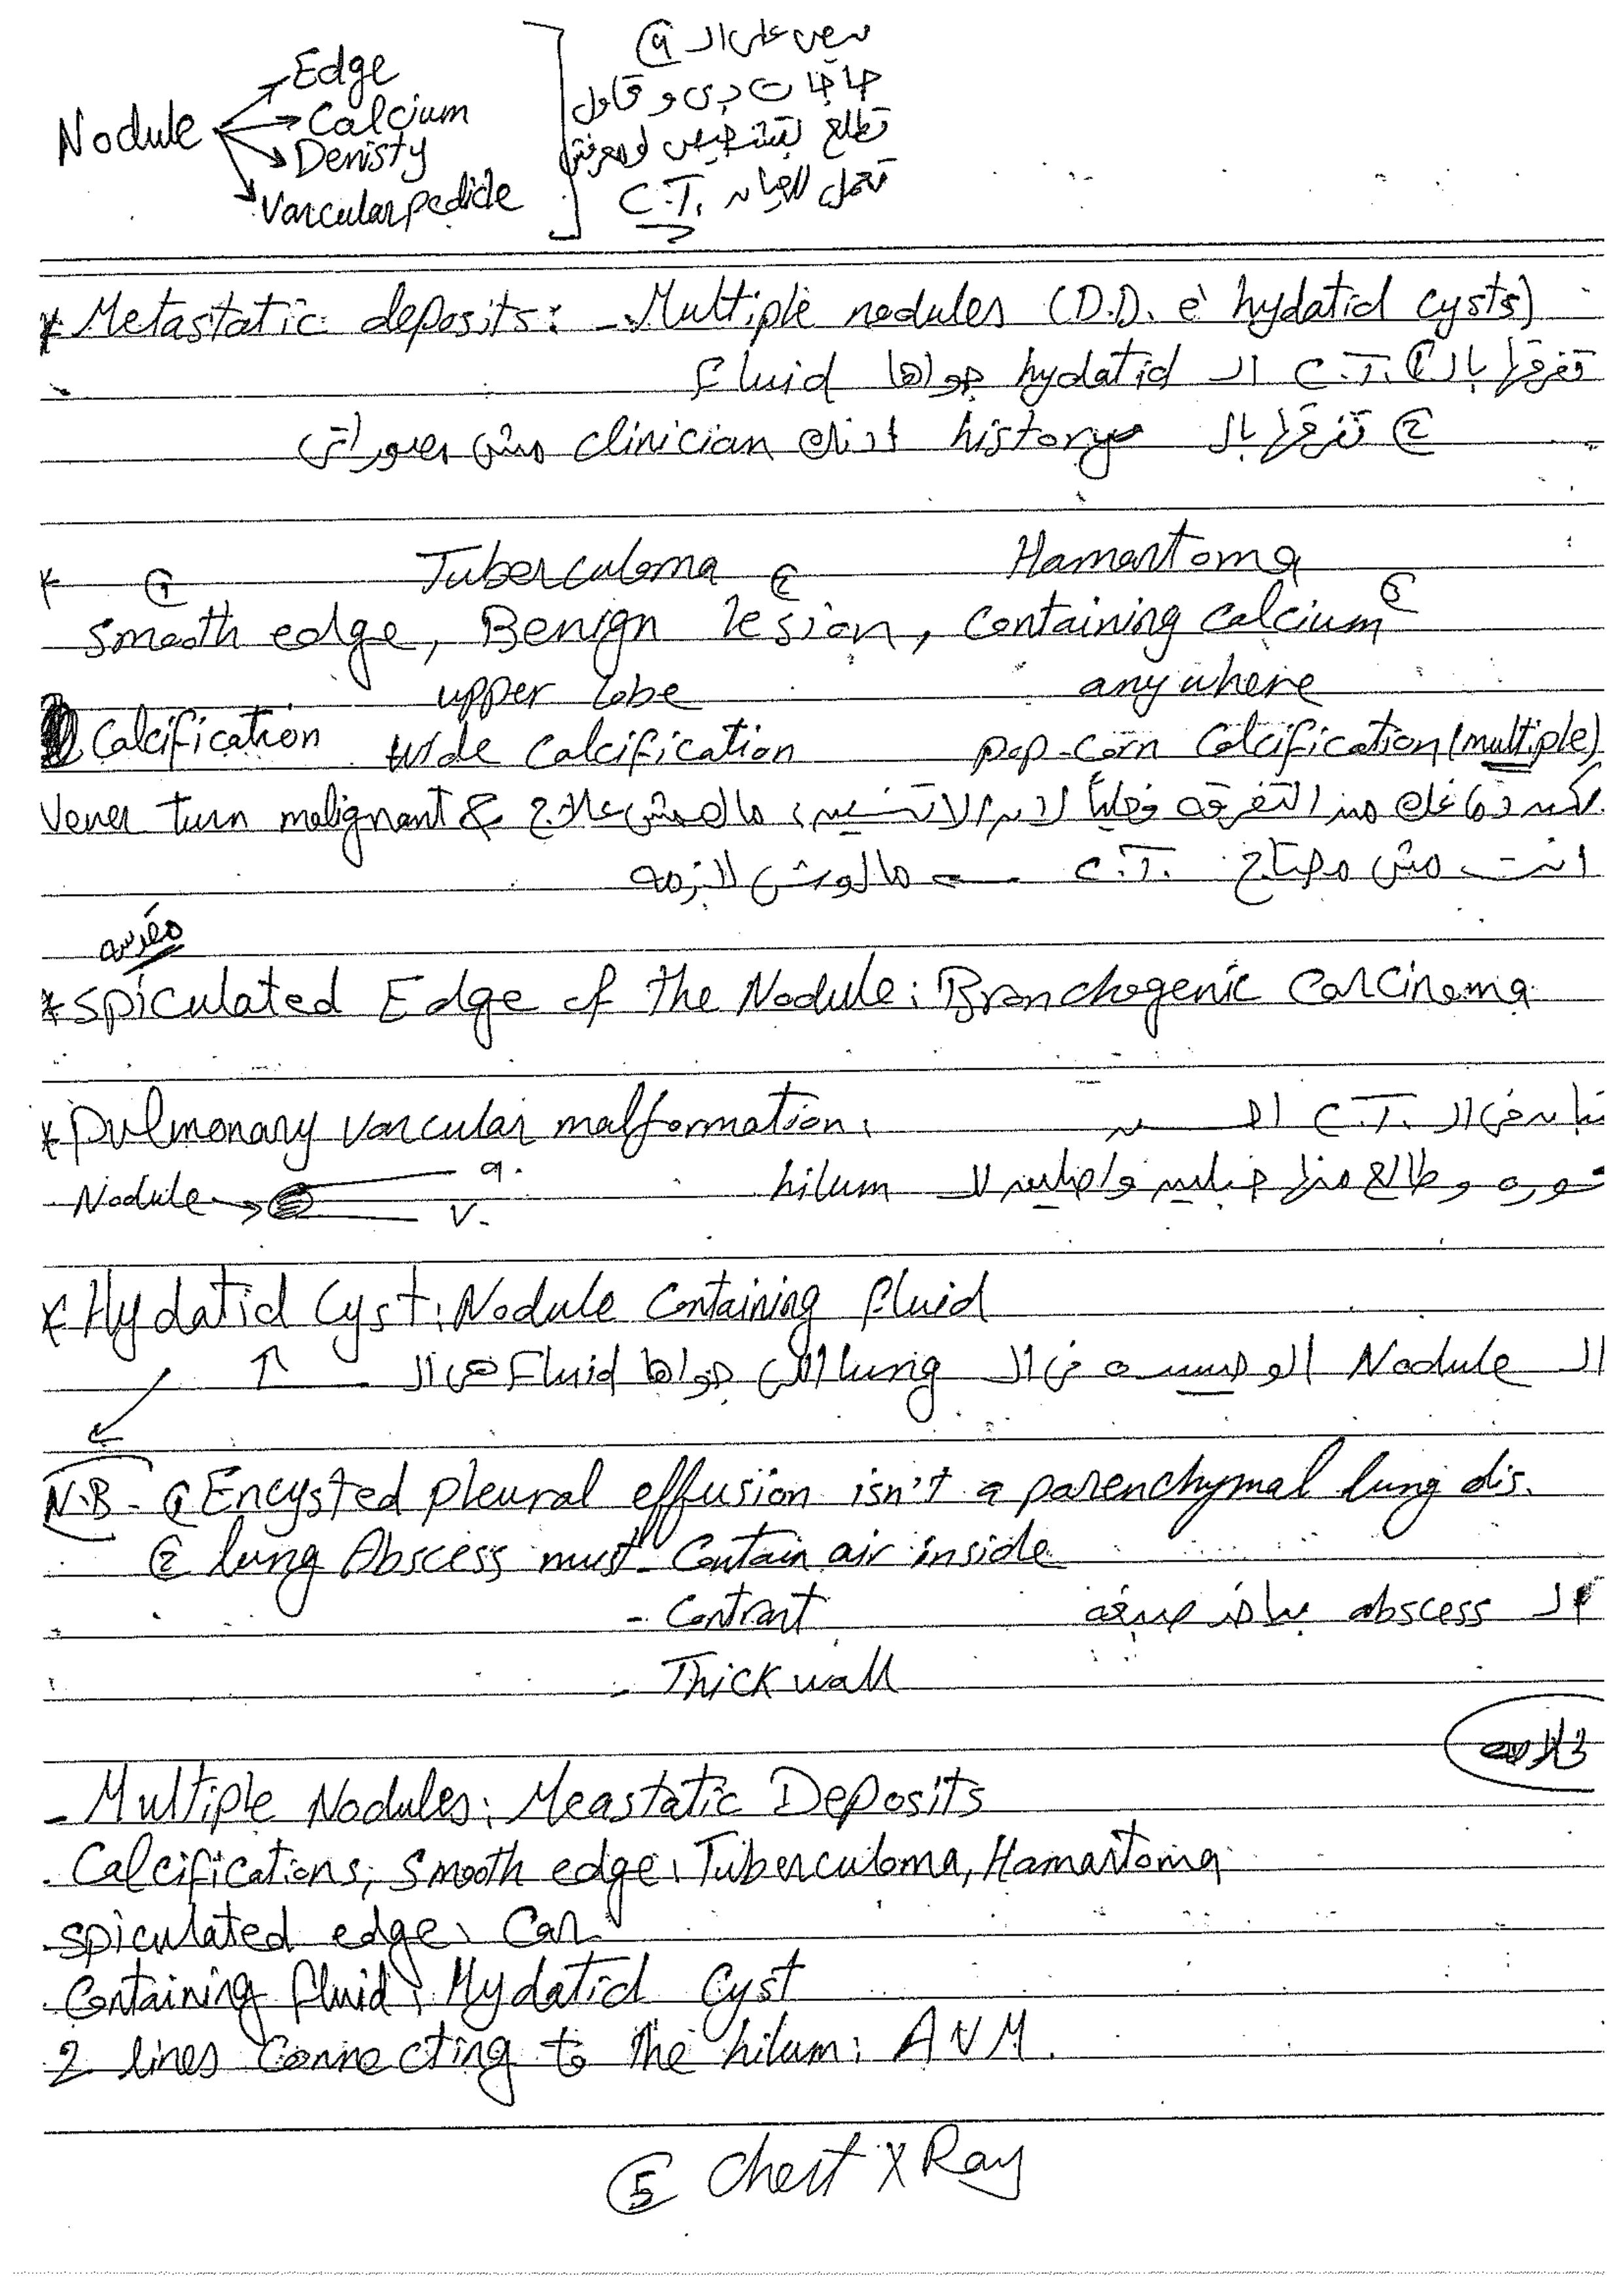 Nodule
Edge
Calcium
Denisty
Varcular pedicle
بص على الـ 4
حاجات دى و حاول
تطلع بتشخيص لو معرفتش
تعمل للعيان C.T.
* Metastatic deposits: - Multiple nodules (D.D. è hydatid cysts)
تفرقها بالـ ① C.T. الـ hydatid جواها fluid
② تفرقها بالـ history لانك clinician مش مصوراتى
* ① Tuberculoma ② Hamartoma ③
Smooth edge, Benign lesion, Containing calcium
upper lobe anywhere
Calcification wide Calcification pop-corn Calcification (multiple)
كبر دماغك من التفرقه لان الاتنين مالهمش علاج & Never turn malignant
انت مش محتاج C.T. مالوش لازمه
* Spiculated Edge of the Nodule: Bronchogenic Carcinoma
* Pulmonary varcular malformation:
تبان فى الـ C.T.
Nodule → a.
v.
وطالع منها خطين واصلين للـ hilum
* Hydatid Cyst: Nodule Containing fluid
الـ Nodule الوحيده فى الـ lung اللى جواها Fluid هى الـ ↑
N.B - ① Encysted pleural effusion isn't a parenchymal lung dis.
② lung Abscess must - Contain air inside
- Contrast
الـ abscess بياخد صبغه
- Thick wall
- Multiple Nodules: Meastatic Deposits
- Calcifications, Smooth edge: Tuberculoma, Hamartoma
- Spiculated edge: Car
- Containing fluid: Hydatid Cyst
2 lines Connecting to the hilum: AVM.
⑤ Chest X Ray